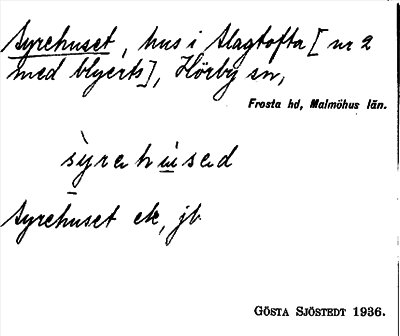 Syrehuset, hus i Slagtofta [nr 2
med blyerts], Hörby sn,
Frosta hd, Malmöhus län.
sỳrehúsed
Syrehuset ek, jb
GÖSTA SJÖSTEDT 1936.